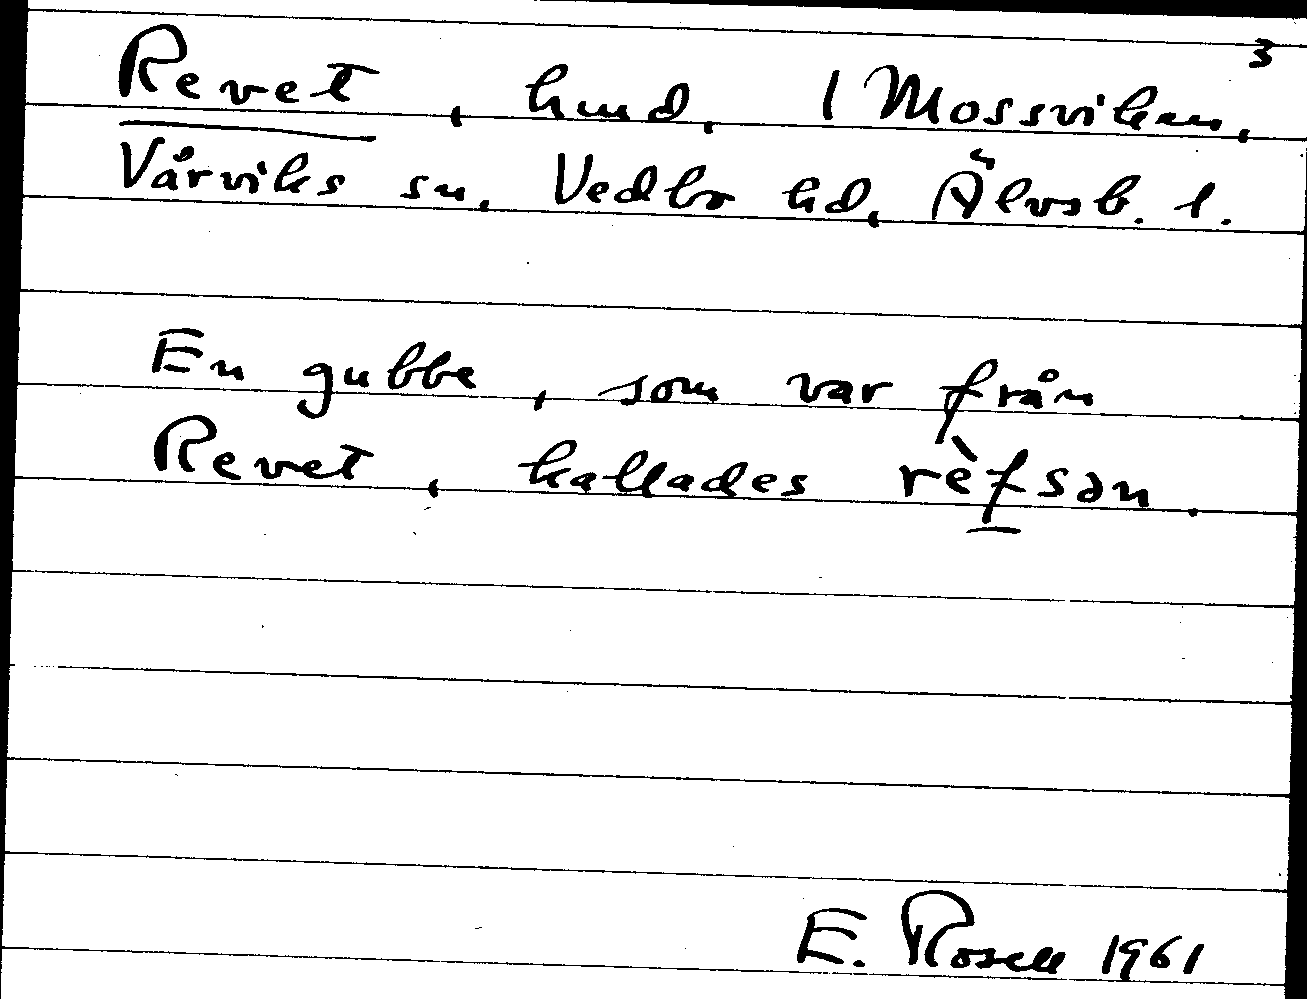 3
Revet, hmd, 1 Mossviken,
Vårviks sn, Vedbo hd, Älvsb. l.
En gubbe, som var från
Revet, kallades rèfsən.
E. Rosell 1961